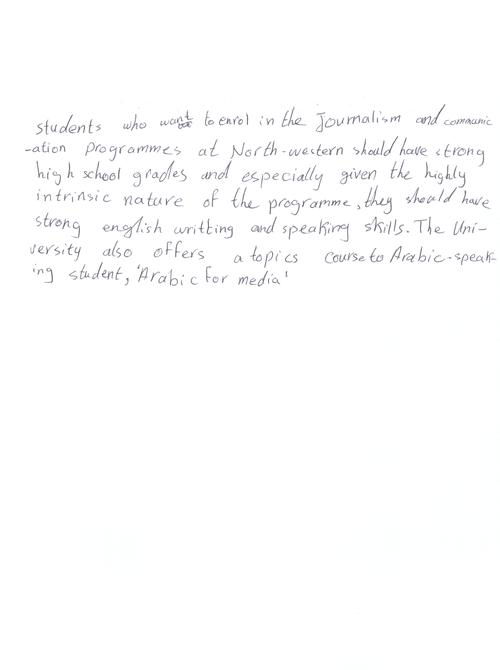 students who want to enrol in the Journalism and communic
-ation programmes at North-western should have strong
high school grades and especially given the highly
intrinsic nature of the programme, they should have
strong english writting and speaking skills. The Uni-
versity also offers a topics course to Arabic-speak-
ing student, 'Arabic for media'